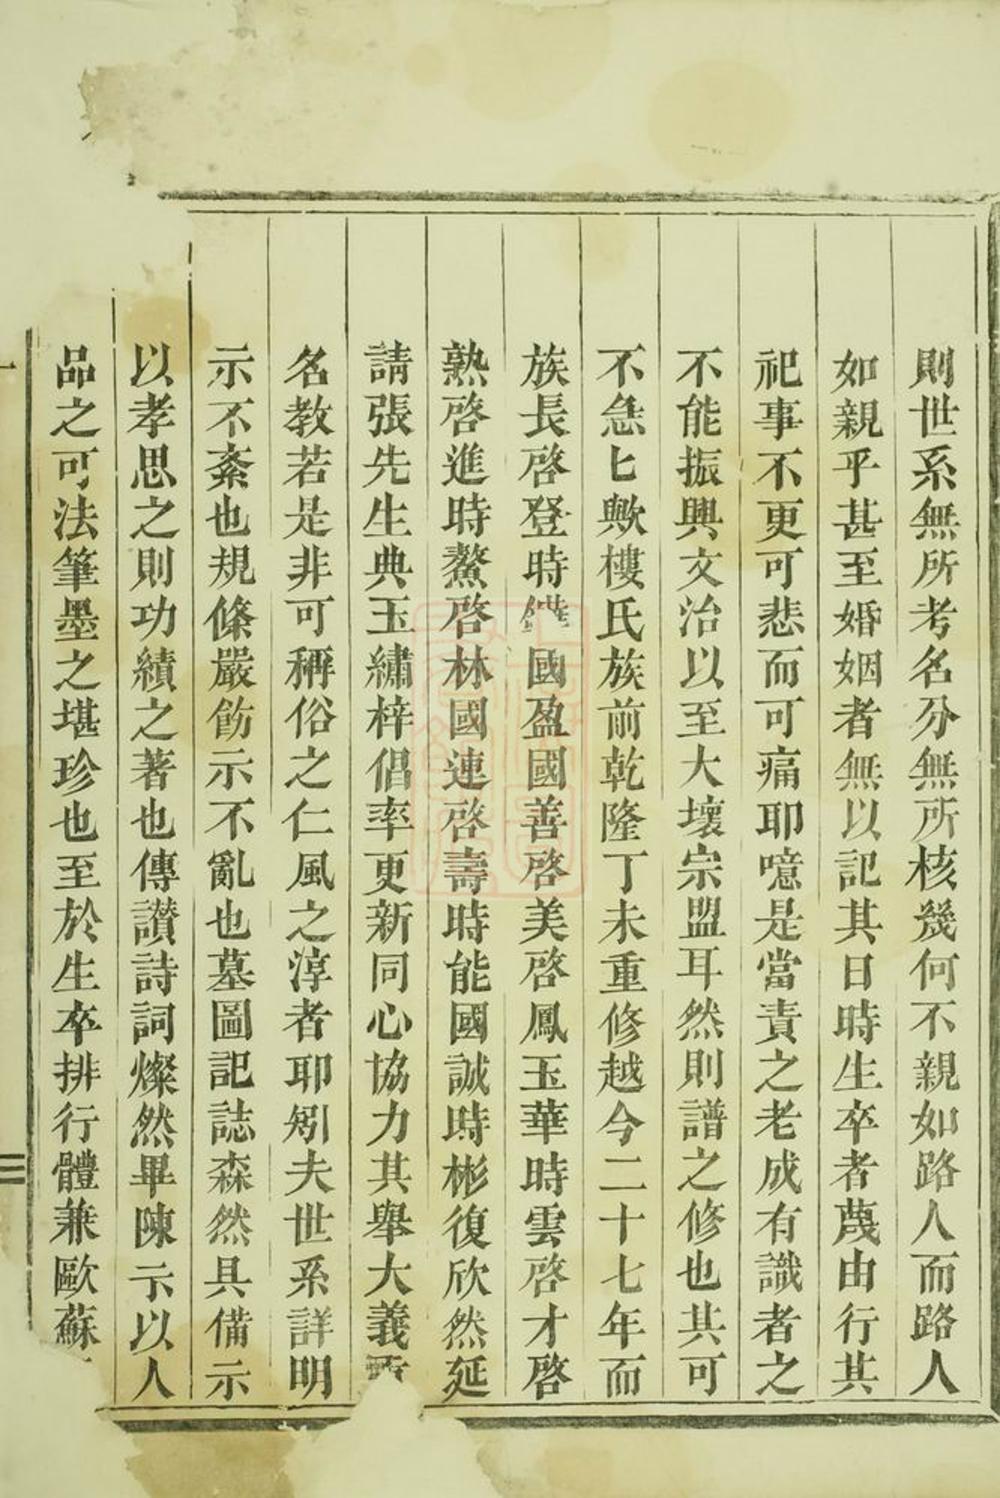 則世系無所考名分無所核幾何不親如路人而路人
如親乎甚至婚姻者無以記其日時生卒者蔑由行其
祀事不更可悲而可痛耶噫是當責之老成有識者之
不能振興文治以至大壞宗盟耳然則譜之修也其可
不急乜歟樓氏族前乾隆丁未重修越今二十七年而
族長啓登時國盈國善啓美啓鳳玉華時雲啓才啓
熟啓進時鰲啓林國連啓壽時能國誠時彬復欣然延
請張先生典玉繡梓倡率更新同心協力其舉大義
名教若是非可稱俗之仁風之淳者耶矧夫世系詳明
示不紊也規條嚴飭示不亂也墓圖記誌森然具備示
以孝思之則功績之著也傳讃詩詞燦然畢陳示以人
品之可法筆墨之堪珍也至於生卒排行體兼歐蘇